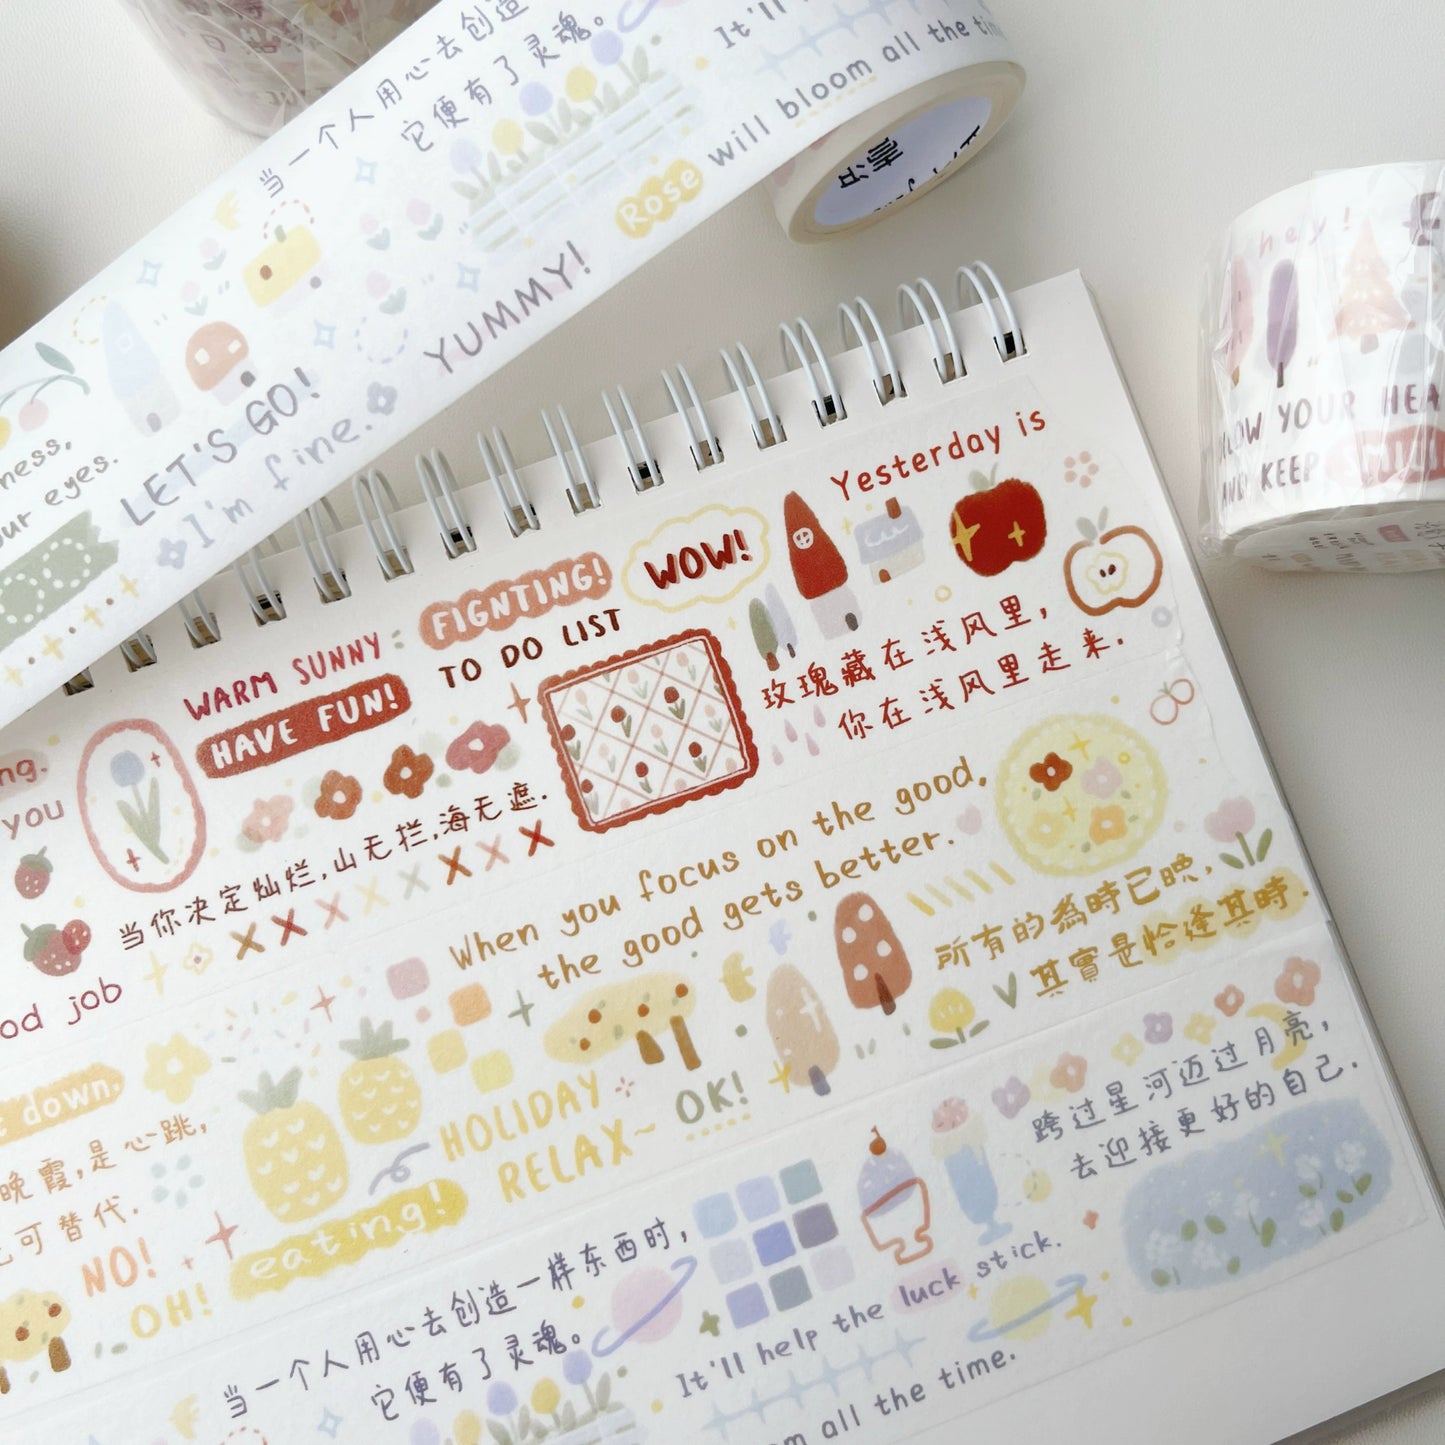 当一个人用心去创造
它便有了灵魂。
It'll
Rose will bloom all the time
YUMMY!
LET'S GO!
I'm fine.
ness,
our eyes.
hey!
YOUR HEA
AND KEEP
Yesterday is
WOW!
FIGNTING!
WARM SUNNY:
TO DO LIST
HAVE FUN!
玫瑰藏在浅风里,
你在浅风里走来.
ng.
you
当你决定灿烂,山无拦,海无遮.
od job
When you focus on the good,
the good gets better.
所有的為時已晚,
其實是恰逢其時.
down.
是心跳,
晚霞,
可替代.
HOLIDAY
RELAX~
OK!
eating!
NO!
OH!
跨过星河迈过月亮,
去迎接更好的自己.
当一个人用心去创造一样东西时,
它便有了灵魂。
It'll help the luck stick.
om all the time.